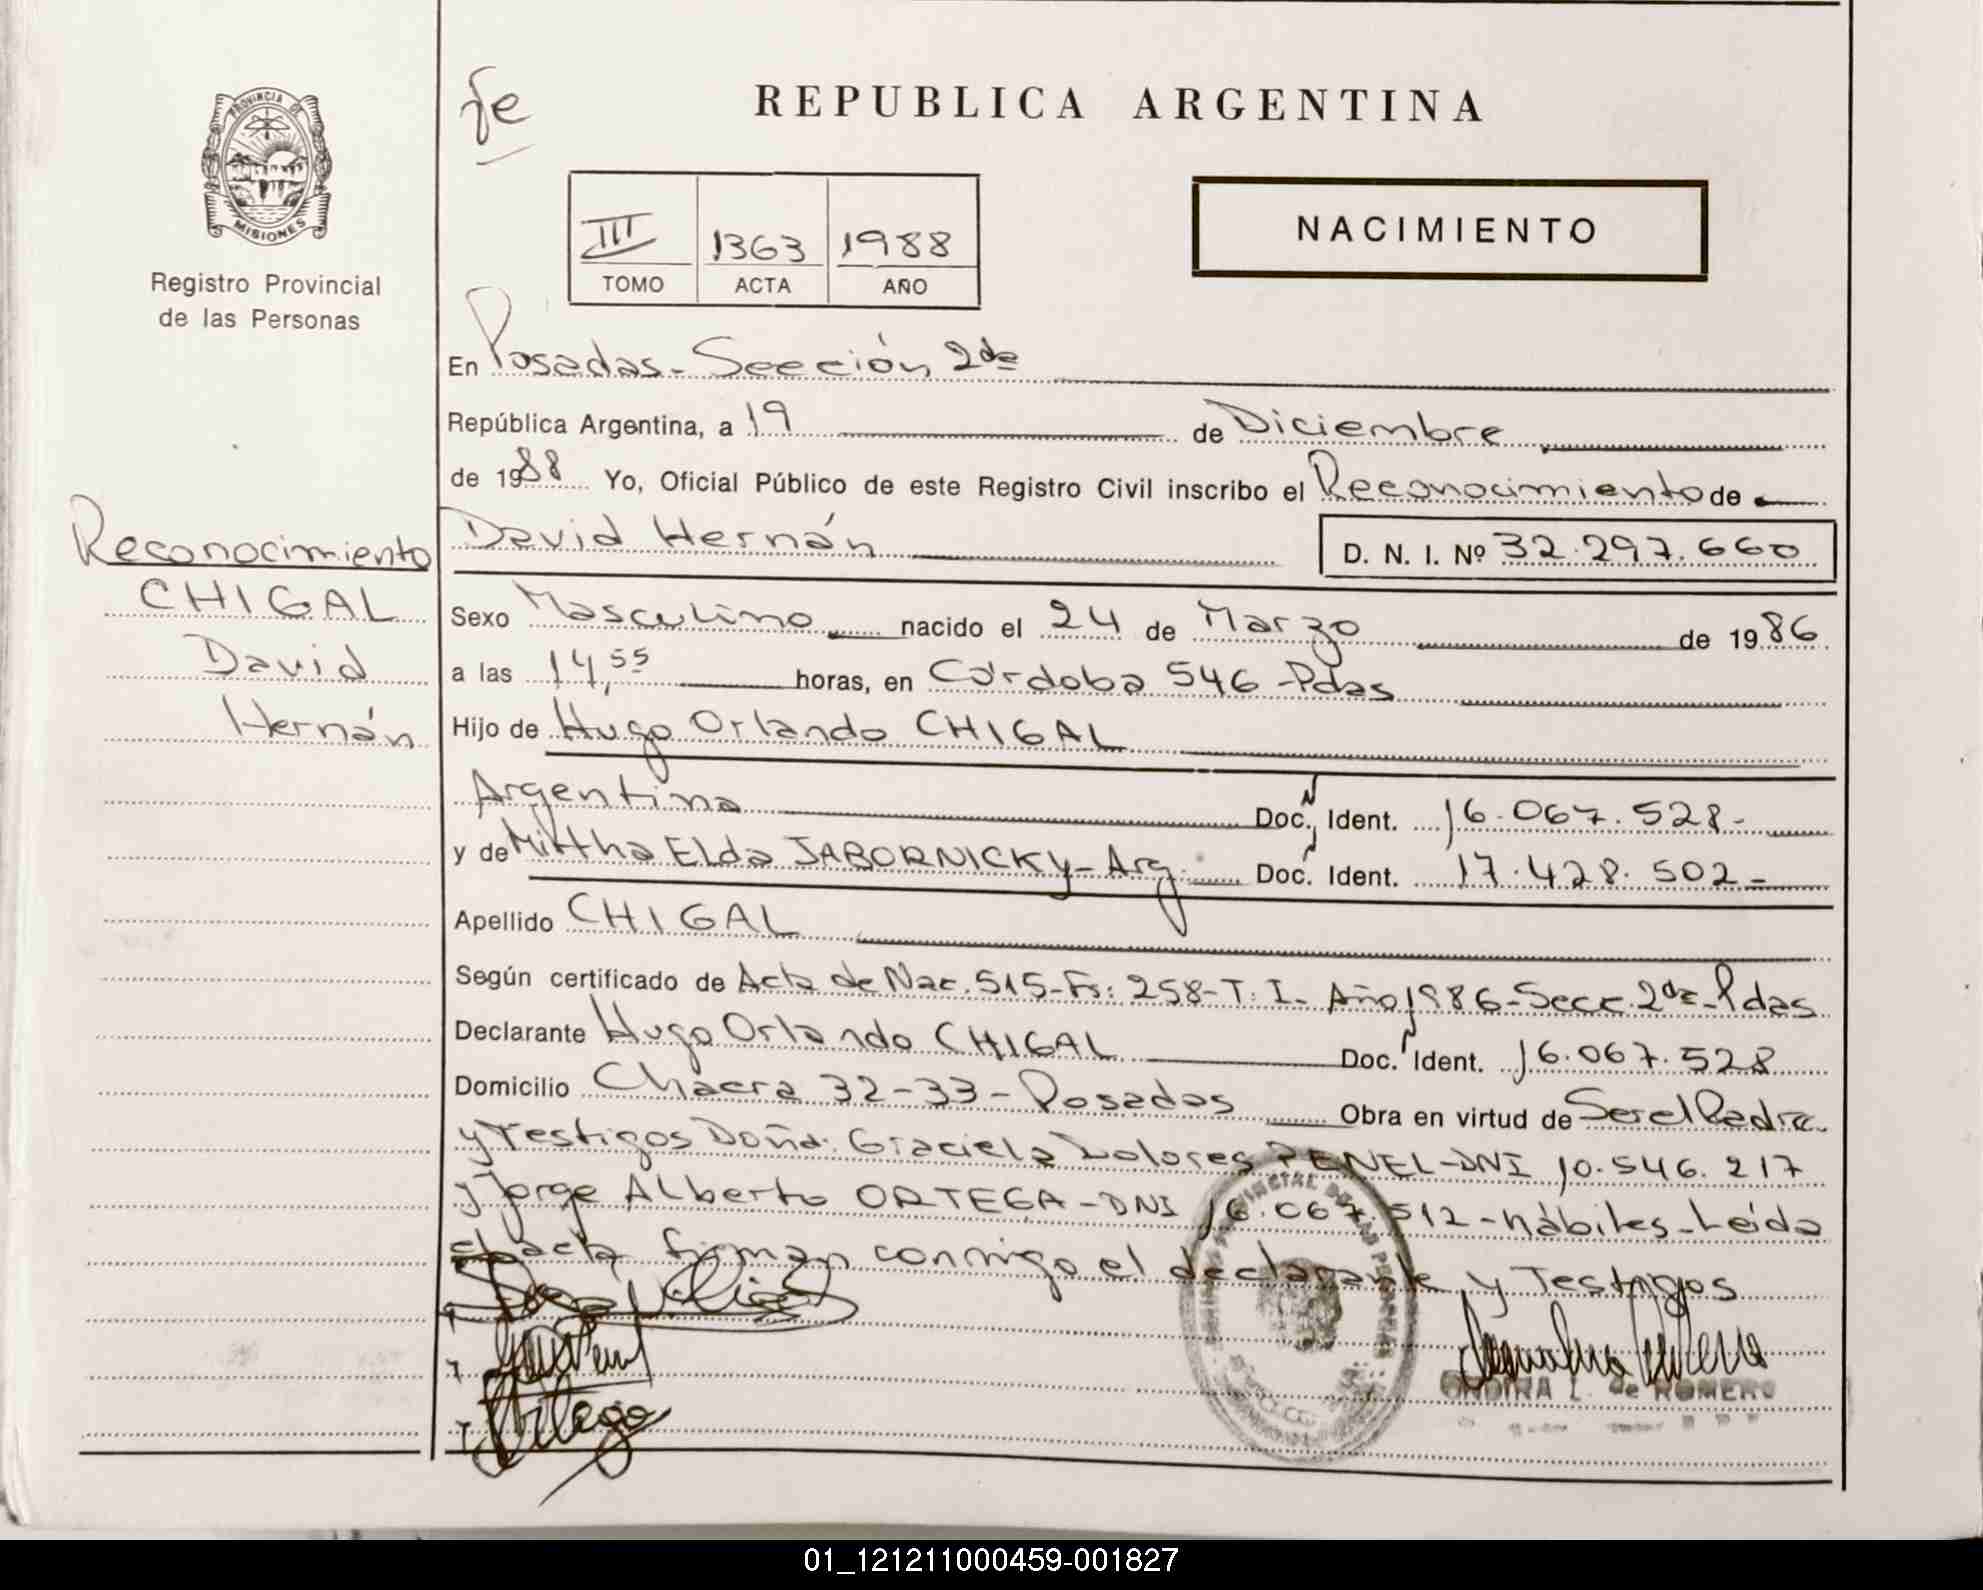 PROVINCIA DE
MISIONES
Registro Provincial
de las Personas
Reconocimiento
CHIGAL
David
Hernán
fe
REPUBLICA ARGENTINA
III 1363 1988
TOMO ACTA AÑO
NACIMIENTO
En Posadas - Sección 2da
República Argentina, a 19 de Diciembre
de 1988 Yo, Oficial Público de este Registro Civil inscribo el Reconocimiento de
David Hernán D. N. I. Nº 32.297.660
Sexo Masculino nacido el 24 de Marzo de 1986
a las 14,55 horas, en Córdoba 546 - Pdas
Hijo de Hugo Orlando CHIGAL
Argentina Doc. N Ident. 16.067.528-
y de Mirtha Elda JABORNICKY - Arg. Doc. Ident. 17.428.502-
Apellido CHIGAL
Según certificado de Acta de Nac. 515 - Fs: 258 - T. I - Año 1986 - Secc. 2da - Pdas
Declarante Hugo Orlando CHIGAL Doc. N Ident. 16.067.528
Domicilio Chacra 32-33 - Posadas Obra en virtud de Ser el Padre
y Testigos Doña: Graciela Dolores PENEL - DNI 10.546.217
y Jorge Alberto ORTEGA - DNI 16.067.512 - hábiles - Leída
el acta firman conmigo el declarante y Testigos
de ROMERO
01_121211000459-001827